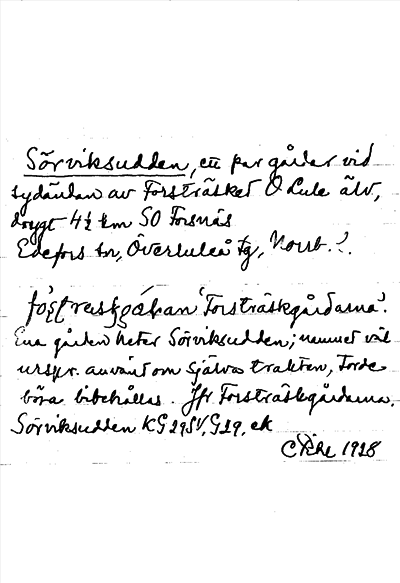 Sörviksudden, ett par gårdar vid
sydändan av Forsträsket O Lule älv,
drygt 4½ km SO Forsnäs
Edefors sn, Överluleå tg, Norrb. l.
'Forsträskgårdarna'.
Ena gården heter Sörviksudden; namnet väl
urspr. använt om själva trakten, torde
böra bibehållas. Jfr Forsträskgårdarna.
Sörviksudden KG 29 SV, G 29, ek
1928